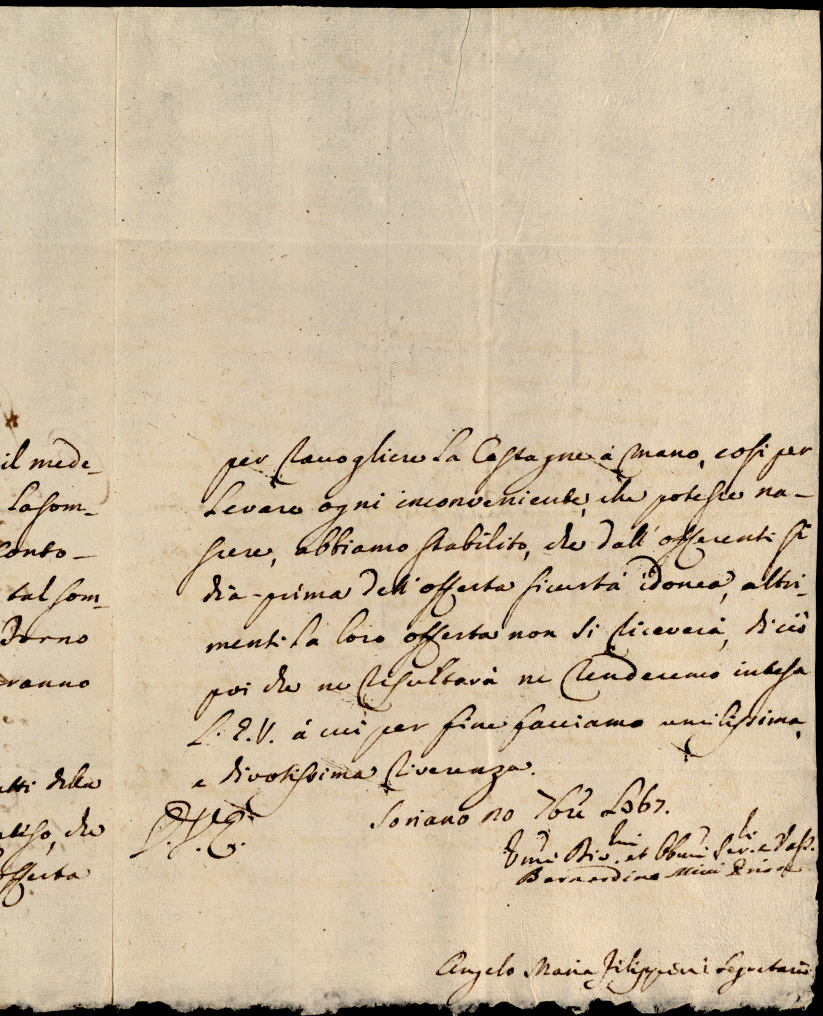 il mede-
la som-
Conto-
tal som-
Torno
ranno
atti della
che
offerta
per raccogliere La Castagne à mano, cosi per
Levare ogni inconveniente, che potesse na-
scere, abbiamo stabilito, che dall'offerenti si
dia prima dell'offerta sicurtà idonea, altri-
menti la loro offerta non si riceverà, di ciò
poi che ne risultarà ne renderemo intesa
L'E.V. à cui per fine facciamo umilissima,
e divotissima riverenza.
Soriano 7bre
D.V.E.
Umi Div.mi et Obbmi Ser.i e Vass.
Bernardino Mini Priore
Angelo Maria Filippini Segretario